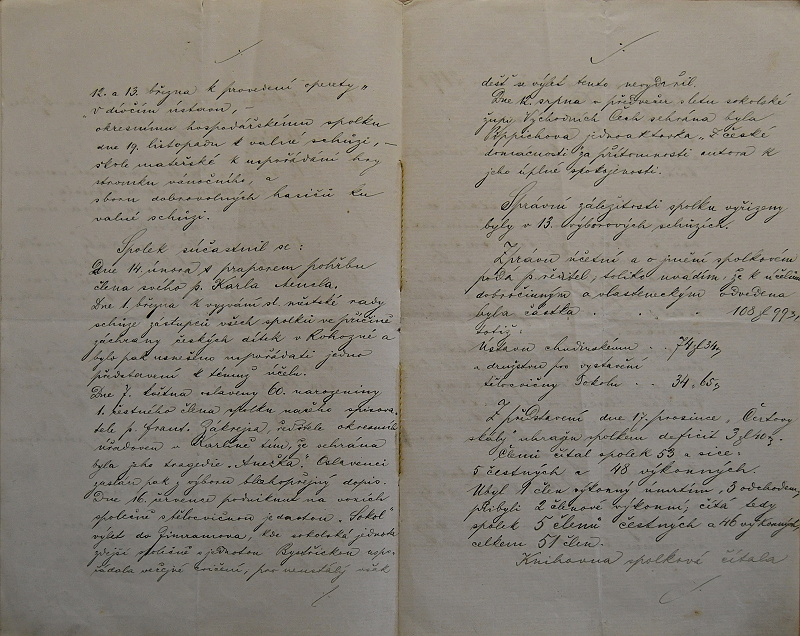 12. a 13. března k provedení operety „
V dívčím ústavu, –
okresnímu hospodářskému spolku
dne 19. listopadu k valné schůzi, –
škole mateřské k uspořádání hry
stromku vánočního, a
sboru dobrovolných hasičů ku
valné schůzi.
Spolek súčastnil se:
Dne 14. února s praporem pohřbu
člena svého p. Karla
Dne 1. března k vyzvání sl. městské rady
schůze zástupců všech spolků ve příčině
záchrany českých dítek v Rohozné a
bylo pak usneseno uspořádati jedno
představení k témuž účeli.
Dne 7. května oslaveny 60. narozeniny
1. čestného člena spolku našeho spisova
tele p. Frant. Zákrejsa, ředitele okresních
úřadoven v Karlíně tím, že sehrána
byla jeho tragedie „Anežka“. Oslavenci
zaslán pak z výboru blahopřejný dopis.
Dne 16. července podniknut na vozích
společně s tělocvičnou jednotou „Sokol“
výlet do Jimramova, kde sokolská jednota
zdejší společně s jednotou Bystřickou uspo-
řádala veřejné cvičení, pro neustálý však
déšť se výlet tento nevydařil.
Dne 12. srpna v předvečer sletu sokolské
župy Východních Čech sehrána byla
Pippichova jednoaktovka „Z české
domácnosti“ za přítomnosti autora k
jeho úplné spokojenosti.
Správní záležitosti spolku vyřízeny
byly v 13. výborových schůzích.
Zprávu účetní a o jmění spolkovém
podá p. účetní, tolik uvádím, že k účelům
dobročinným a vlasteneckým odvedena
byla částka . . . 108 zl 99 3,
totiž:
Ústavu chudinskému . . 74 zl 34,
a družstvu pro vystavění
tělocvičny Sokolu . . 34 „ 65 „
Z představení dne 17. prosince „Čertovy
skály“ uhražen spolkem deficit 3 zl 40
Členů čítal spolek 53 a sice:
5 čestných a 48 výkonných.
Ubyl 1 člen výkonný úmrtím, 3 odchodem,
přibyli 2 členové výkonní, čítá tedy
spolek 5 členů čestných a 46 výkonných,
celkem 51 člen.
Knihovna spolková čítala